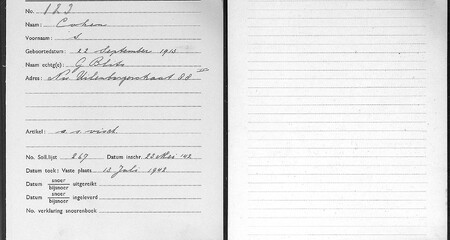 No. 123
Naam: Cohen
Voornaam: S.
Geboortedatum: 22 September 1913
Naam echtg(e): G Blits
Adres: Nw Uilenburgerstraat 88 III
Artikel: a.s. visch
No. Soll.lijst 267 Datum inschr. 20 Mei '42
Datum toek: Vaste plaats 13 Juli 1942
Datum snoer / bijsnoer uitgereikt
Datum snoer / bijsnoer ingeleverd
No. verklaring snoerenboek